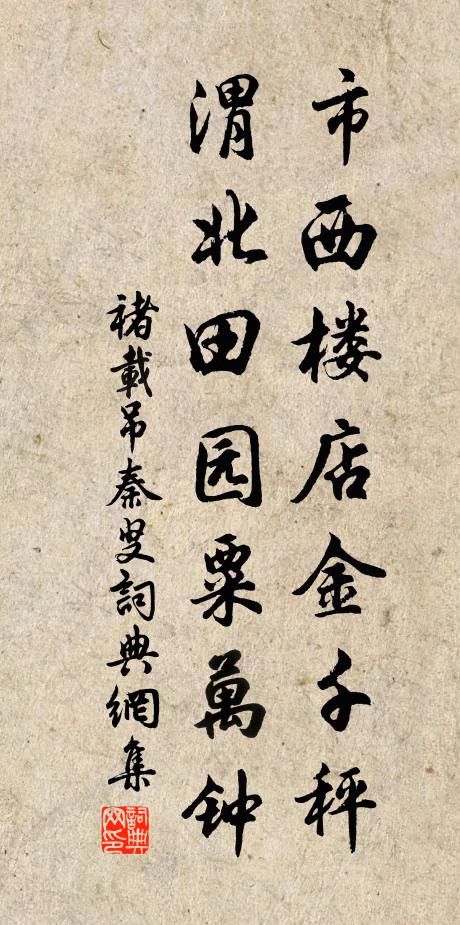 市西楼店金千秤
渭北田园粟萬钟
褚載吊秦叟詞典網集
詞典
网印